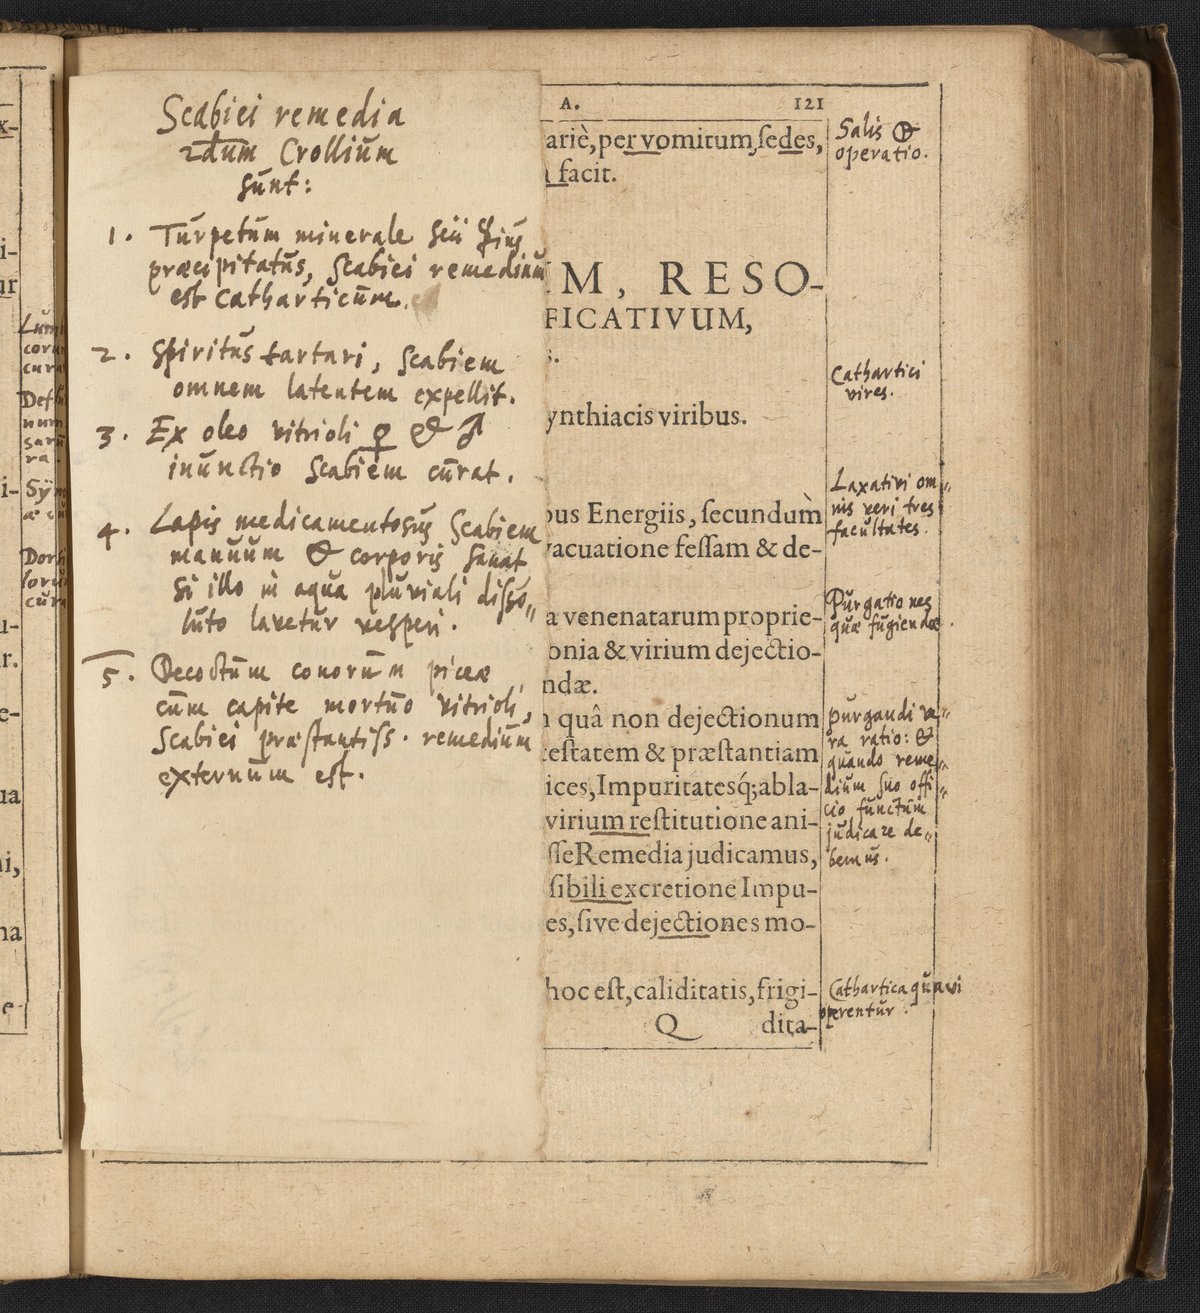 Scabiei remedia
2dum Crollium
sunt:
1. Turpetum minerale seu ☿ius
præcipitatus, scabiei remedium
est catharticum.
2. Spiritus tartari, scabiem
omnem latentem expellit.
3. Ex oleo vitrioli ♀ & ♂
inunctio scabiem curat.
4. Lapis medicamentosus scabiem
manuum & corporis sanat
si illo in aqua pluviali disso„
luto lavetur vesperi.
5. Decoctum conorum piceæ
cum capite mortuo vitrioli,
scabiei præstantiss. remedium
externum est.
A. 121
ariè, per vomitum, ſedes,
facit.
M, RESO-
FICATIVUM,
s.
ynthiacis viribus.
ous Energiis, ſecundum̀
vacuatione feſſam & de-
a venenatarum proprie-
onia & virium dejectio-
ndæ.
quâ non dejectionum
teſtatem & præſtantiam
ices, Impuritatesq́; abla-
virium reſtitutione ani-
ſſe Remedia judicamus,
ſibili excretione Impu-
es, ſive dejectiones mo-
hoc eſt, caliditatis, frigi-
Q dita-
Salis
operatio.
Cathartici
vires.
Laxativi om„
nis veri tres
facultates.
Purgationes
quæ fugiendæ.
purgandi ve„
ra ratio: &
quando reme„
dium suo offi„
cio functum
judicare de„
bemus.
Cathartica qua vi
operentur.